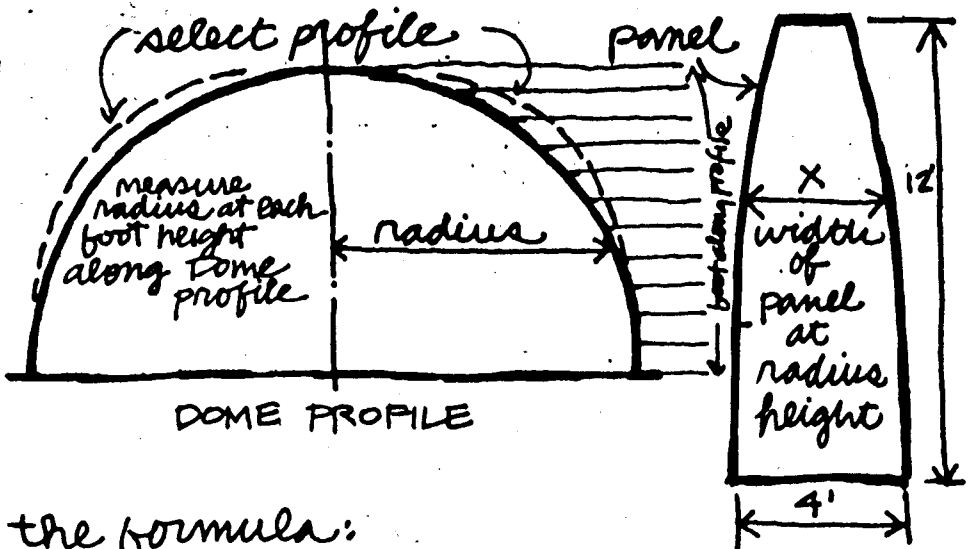 select profile
panel
measure
radius at each
foot height
along Dome
profile
radius
foot along profile
12'
X
width
of
panel
at
radius
height
4'
DOME PROFILE
the formula: